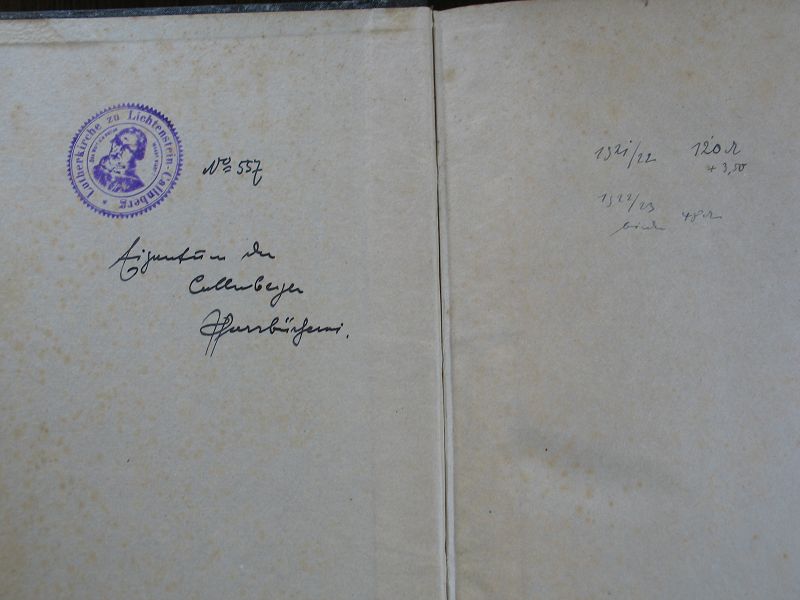 Lutherkirche zu Lichtenstein-Callnberg
No 557
Eigentum der
Callenberger
Pfarrbücherei.
1921/22 120 M
+ 3,50
1922/23
48 M